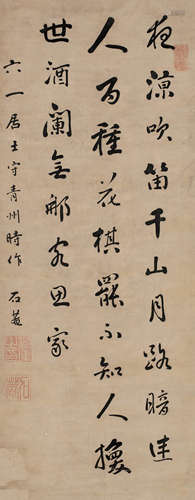 夜凉吹笛千山月路暗迷
人百种花棋罢不知人换
世酒阑无那客思家
六一居士守青州时作 石庵